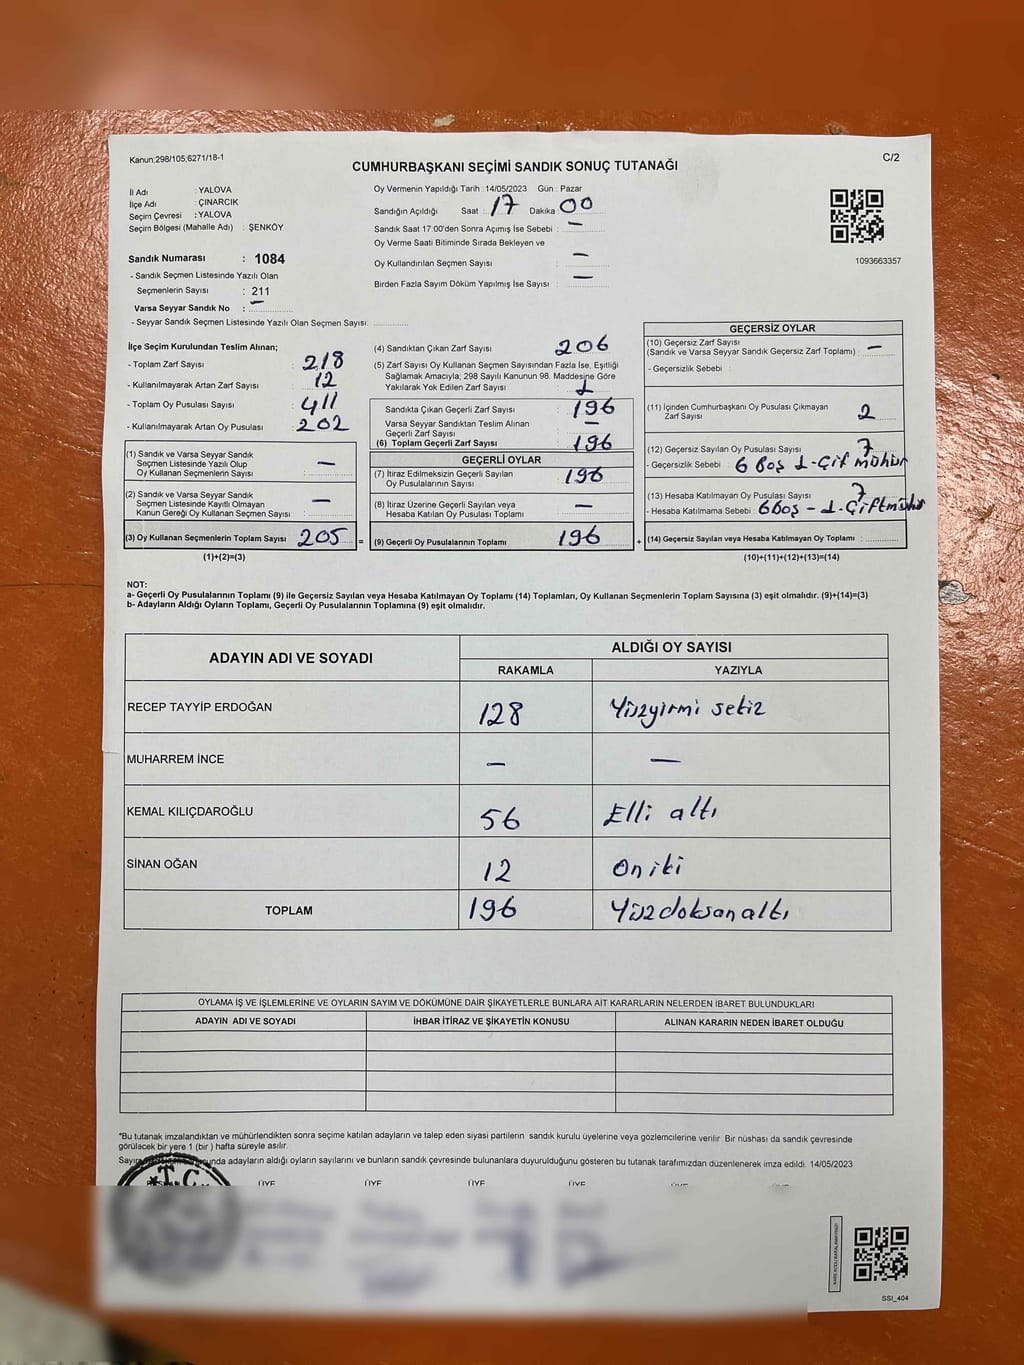 Kanun;298/105;6271/18-1
C/2
CUMHURBAŞKANI SEÇİMİ SANDIK SONUÇ TUTANAĞI
İl Adı : YALOVA
İlçe Adı : ÇINARCIK
Seçim Çevresi : YALOVA
Seçim Bölgesi (Mahalle Adı) : ŞENKÖY
Sandık Numarası : 1084
- Sandık Seçmen Listesinde Yazılı Olan
Seçmenlerin Sayısı : 211
Varsa Seyyar Sandık No : —
- Seyyar Sandık Seçmen Listesinde Yazılı Olan Seçmen Sayısı:
Oy Vermenin Yapıldığı Tarih : 14/05/2023 Gün : Pazar
Sandığın Açıldığı Saat : 17 Dakika 00
Sandık Saat 17:00'den Sonra Açımış İse Sebebi : —
Oy Verme Saati Bitiminde Sırada Bekleyen ve
Oy Kullandırılan Seçmen Sayısı : —
Birden Fazla Sayım Döküm Yapılmış İse Sayısı : —
1093663357
İlçe Seçim Kurulundan Teslim Alınan;
- Toplam Zarf Sayısı : 218
- Kullanılmayarak Artan Zarf Sayısı : 12
- Toplam Oy Pusulası Sayısı : 411
- Kullanılmayarak Artan Oy Pusulası : 202
(1) Sandık ve Varsa Seyyar Sandık
Seçmen Listesinde Yazılı Olup
Oy Kullanan Seçmenlerin Sayısı : —
(2) Sandık ve Varsa Seyyar Sandık
Seçmen Listesinde Kayıtlı Olmayan
Kanun Gereği Oy Kullanan Seçmen Sayısı : —
(3) Oy Kullanan Seçmenlerin Toplam Sayısı 205 =
(1)+(2)=(3)
(4) Sandıktan Çıkan Zarf Sayısı : 206
(5) Zarf Sayısı Oy Kullanan Seçmen Sayısından Fazla İse, Eşitliği
Sağlamak Amacıyla; 298 Sayılı Kanunun 98. Maddesine Göre
Yakılarak Yok Edilen Zarf Sayısı : 1
Sandıkta Çıkan Geçerli Zarf Sayısı : 196
Varsa Seyyar Sandıktan Teslim Alınan
Geçerli Zarf Sayısı : —
(6) Toplam Geçerli Zarf Sayısı : 196
GEÇERLİ OYLAR
(7) İtiraz Edilmeksizin Geçerli Sayılan
Oy Pusulalarının Sayısı : 196
(8) İtiraz Üzerine Geçerli Sayılan veya
Hesaba Katılan Oy Pusulası Toplamı : —
(9) Geçerli Oy Pusulalarının Toplamı : 196 +
GEÇERSİZ OYLAR
(10) Geçersiz Zarf Sayısı
(Sandık ve Varsa Seyyar Sandık Geçersiz Zarf Toplamı) : —
- Geçersizlik Sebebi :
(11) İçinden Cumhurbaşkanı Oy Pusulası Çıkmayan
Zarf Sayısı : 2
(12) Geçersiz Sayılan Oy Pusulası Sayısı : 7
- Geçersizlik Sebebi : 6 Boş 1-Çif mühür
(13) Hesaba Katılmayan Oy Pusulası Sayısı : 7
- Hesaba Katılmama Sebebi : 6 Boş - 1-Çiftmühür
(14) Geçersiz Sayılan veya Hesaba Katılmayan Oy Toplamı :
(10)+(11)+(12)+(13)=(14)
NOT:
a- Geçerli Oy Pusulalarının Toplamı (9) ile Geçersiz Sayılan veya Hesaba Katılmayan Oy Toplamı (14) Toplamları, Oy Kullanan Seçmenlerin Toplam Sayısına (3) eşit olmalıdır. (9)+(14)=(3)
b- Adayların Aldığı Oyların Toplamı, Geçerli Oy Pusulalarının Toplamına (9) eşit olmalıdır.
ADAYIN ADI VE SOYADI ALDIĞI OY SAYISI
RAKAMLA YAZIYLA
RECEP TAYYİP ERDOĞAN 128 Yüzyirmi sekiz
MUHARREM İNCE — —
KEMAL KILIÇDAROĞLU 56 Elli altı
SİNAN OĞAN 12 on iki
TOPLAM 196 Yüzdoksanaltı
OYLAMA İŞ VE İŞLEMLERİNE VE OYLARIN SAYIM VE DÖKÜMÜNE DAİR ŞİKAYETLERLE BUNLARA AİT KARARLARIN NELERDEN İBARET BULUNDUKLARI
ADAYIN ADI VE SOYADI İHBAR İTİRAZ VE ŞİKAYETİN KONUSU ALINAN KARARIN NEDEN İBARET OLDUĞU
*Bu tutanak imzalandıktan ve mühürlendikten sonra seçime katılan adayların ve talep eden siyasi partilerin sandık kurulu üyelerine veya gözlemcilerine verilir. Bir nüshası da sandık çevresinde
görülecek bir yere 1 (bir) hafta süreyle asılır.
adayların aldığı oyların sayılarını ve bunların sandık çevresinde bulunanlara duyurulduğunu gösteren bu tutanak tarafımızdan düzenlenerek imza edildi. 14/05/2023
T.C.
ÜYE ÜYE ÜYE ÜYE ÜYE ÜYE
SSI_404